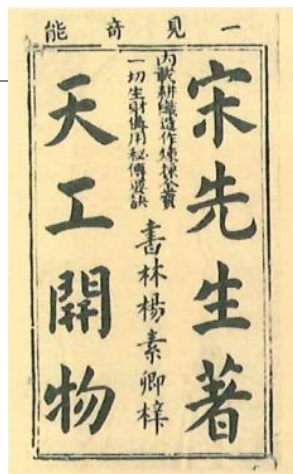 一見奇能
宋先生著
內載耕織造作煉採金寶
一切生財備用秘傳要訣
書林楊素卿梓
天工開物